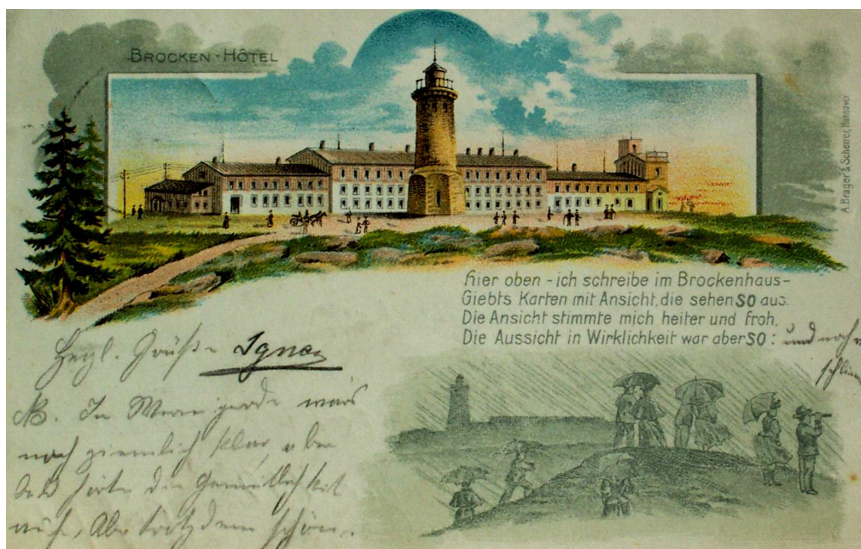 BROCKEN-HÔTEL
A. Brager & Scherrer, Hannover
Hier oben - ich schreibe im Brockenhaus-
Giebts Karten mit Ansicht, die sehen SO aus.
Die Ansicht stimmte mich heiter und froh,
Die Aussicht in Wirklichkeit war aber SO:
und noch
Herzl. Grüße Ignaz
NB. In
noch ziemlich klar, aber
die Gemütlichkeit
auf, Aber trotzdem schön.